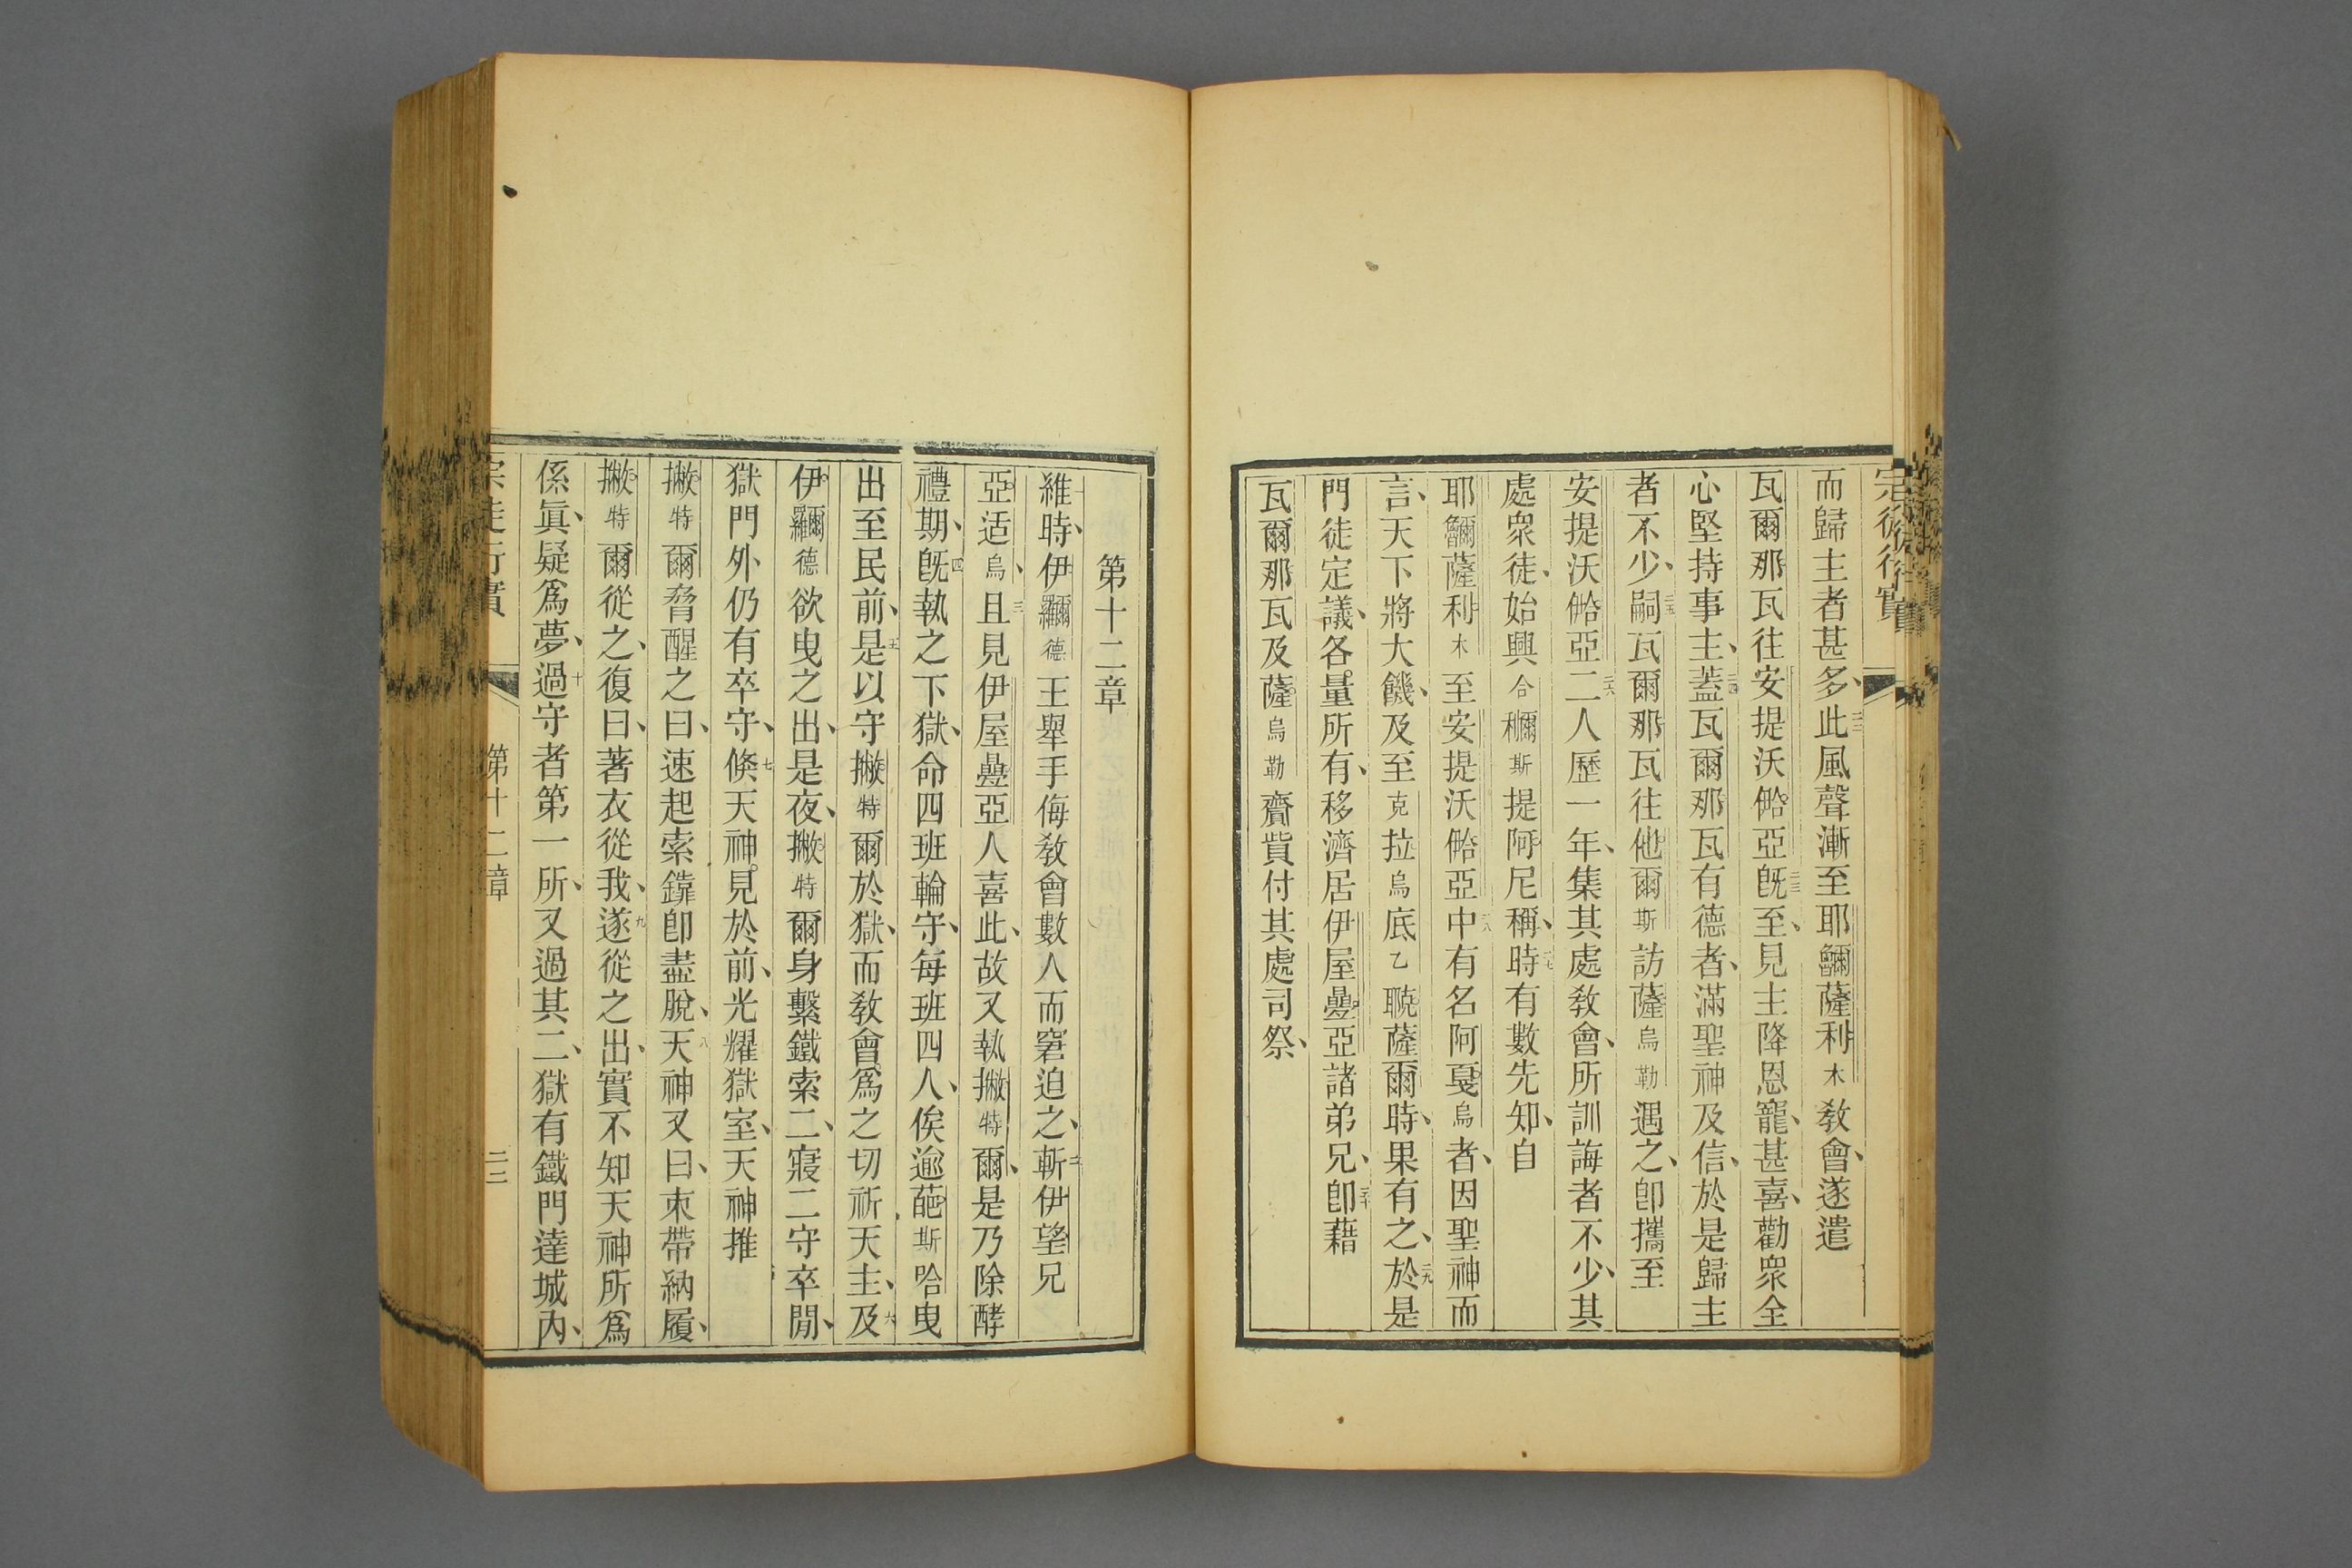 宗徒行實
而歸主者甚多、二二此風聲漸至耶穪薩利木敎會、遂遣
瓦爾那瓦往安提沃㑅亞二三旣至、見主降恩寵、甚喜、勸衆全
心堅持事主、二四蓋瓦爾那瓦有德者、滿聖神及信、於是歸主
者不少、二五嗣瓦爾那瓦往他爾斯訪薩烏勒遇之、卽攜至
安提沃㑅亞二六二人歷一年、集其處敎會、所訓誨者不少、其
處衆徒、始興合穪斯提阿尼稱、二七時有數先知、自
耶穪薩利木至安提沃㑅亞二八中有名阿戛烏者、因聖神而
言、天下將大饑、及至克拉烏底乙薩爾時、果有之、二九於是
門徒定議、各量所有、移濟居伊屋疊亞諸弟兄、三十卽藉
瓦爾那瓦及薩烏勒齎貲付其處司祭、
第十二章
一維時、伊羅德王舉手侮敎會數人而窘迫之、二斬伊望兄
亞适烏、三且見伊屋疊亞人喜此、故又執撇特爾、是乃除酵
禮期、四旣執之下獄、命四班輪守、每班四人、俟逾葩斯哈曳
出至民前、五是以守撇特爾於獄、而敎會爲之切祈天主、六及
伊羅德欲曳之出、是夜、撇特爾身繫鐵索二、寢二守卒閒、
獄門外仍有卒守、七倏天神見於前、光耀獄室、天神推
撇特爾脅醒之曰、速起索鏵卽盡脫、八天神又曰、束帶納履、
撇特爾從之、復曰、著衣從我、九遂從之出、實不知天神所爲
係眞、疑爲夢、十過守者第一所、又過其二、獄有鐵門達城內、
宗徒行實 第十二章 二二